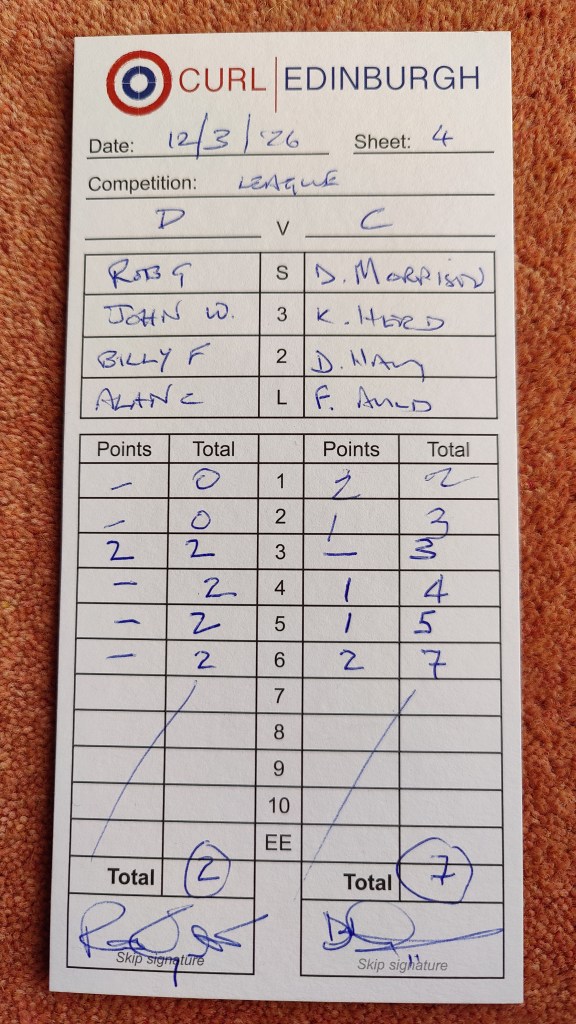 CURL | EDINBURGH
Date: 12/3/'26 Sheet: 4
Competition: LEAGUE
D V C
ROB G S D. MORRISON
JOHN W. 3 K. HERD
BILLY F 2 D. HAY
ALAN C L F. AULD
Points Total Points Total
- 0 1 2 2
- 0 2 1 3
2 2 3 - 3
- 2 4 1 4
- 2 5 1 5
- 2 6 2 7
7
8
9
10
EE
Total 2 Total 7
Skip signature Skip signature